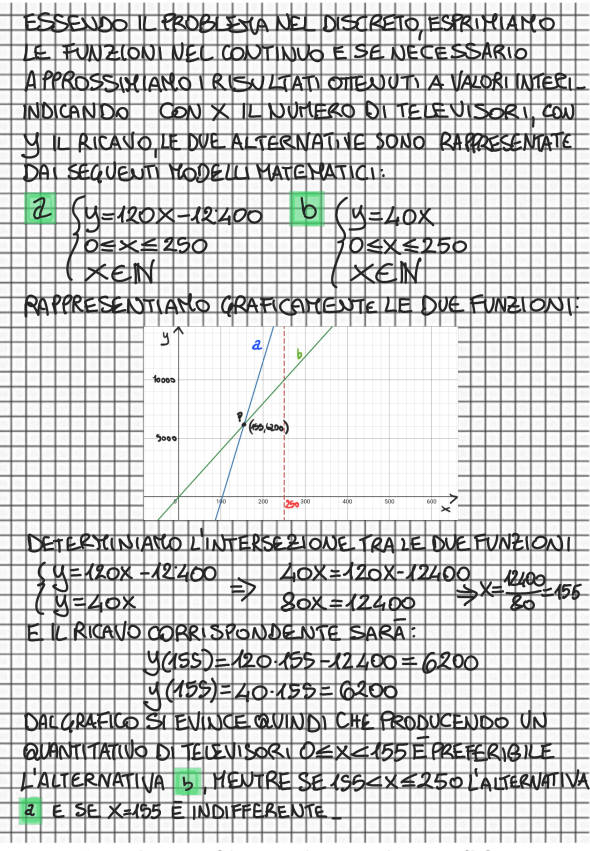 ESSENDO IL PROBLEMA NEL DISCRETO, ESPRIMIAMO
LE FUNZIONI NEL CONTINUO E SE NECESSARIO
APPROSSIMIAMO I RISULTATI OTTENUTI A VALORI INTERI_
INDICANDO CON X IL NUMERO DI TELEVISORI, CON
y IL RICAVO, LE DUE ALTERNATIVE SONO RAPPRESENTATE
DAI SEGUENTI MODELLI MATEMATICI:
a { y=120X-12400 b { y=40X
0≤X≤250 0≤X≤250
X∈ℕ X∈ℕ
RAPPRESENTIAMO GRAFICAMENTE LE DUE FUNZIONI:
y a b
10000
P (155,6200)
5000
0 100 200 250 300 400 500 600 x
DETERMINIAMO L'INTERSEZIONE TRA LE DUE FUNZIONI
{ y=120X-12400 => 40X=120X-12400 => X=12400/80=155
y=40X 80X=12400
E IL RICAVO CORRISPONDENTE SARÀ:
y(155)=120·155-12400=6200
y(155)=40·155=6200
DAL GRAFICO SI EVINCE QUINDI CHE PRODUCENDO UN
QUANTITATIVO DI TELEVISORI 0≤X<155 È PREFERIBILE
L'ALTERNATIVA b, MENTRE SE 155<X≤250 L'ALTERNATIVA
a E SE X=155 È INDIFFERENTE_